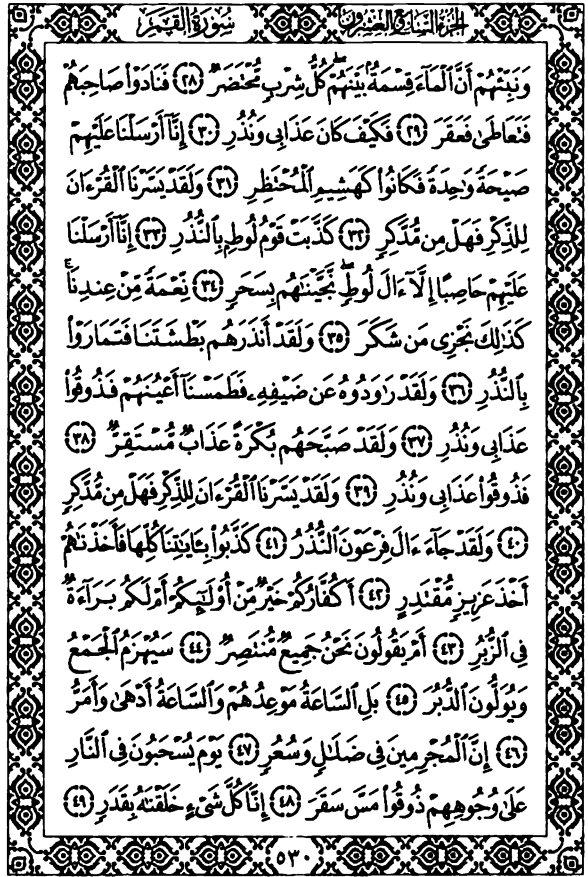 سُورَةُ القَمَرِ الجُزْءُ السَّابِعُ وَالعِشْرُونَ
وَنَبِّئْهُمْ أَنَّ ٱلْمَآءَ قِسْمَةٌۢ بَيْنَهُمْ ۖ كُلُّ شِرْبٍ مُّحْتَضَرٌ ٢٨ فَنَادَوْا۟ صَاحِبَهُمْ
فَتَعَاطَىٰ فَعَقَرَ ٢٩ فَكَيْفَ كَانَ عَذَابِى وَنُذُرِ ٣٠ إِنَّآ أَرْسَلْنَا عَلَيْهِمْ
صَيْحَةً وَٰحِدَةً فَكَانُوا۟ كَهَشِيمِ ٱلْمُحْتَظِرِ ٣١ وَلَقَدْ يَسَّرْنَا ٱلْقُرْءَانَ
لِلذِّكْرِ فَهَلْ مِن مُّدَّكِرٍ ٣٢ كَذَّبَتْ قَوْمُ لُوطٍۭ بِٱلنُّذُرِ ٣٣ إِنَّآ أَرْسَلْنَا
عَلَيْهِمْ حَاصِبًا إِلَّآ ءَالَ لُوطٍ ۖ نَّجَّيْنَٰهُم بِسَحَرٍ ٣٤ نِّعْمَةً مِّنْ عِندِنَا ۚ
كَذَٰلِكَ نَجْزِى مَن شَكَرَ ٣٥ وَلَقَدْ أَنذَرَهُم بَطْشَتَنَا فَتَمَارَوْا۟
بِٱلنُّذُرِ ٣٦ وَلَقَدْ رَٰوَدُوهُ عَن ضَيْفِهِۦ فَطَمَسْنَآ أَعْيُنَهُمْ فَذُوقُوا۟
عَذَابِى وَنُذُرِ ٣٧ وَلَقَدْ صَبَّحَهُم بُكْرَةً عَذَابٌ مُّسْتَقِرٌّ ٣٨
فَذُوقُوا۟ عَذَابِى وَنُذُرِ ٣٩ وَلَقَدْ يَسَّرْنَا ٱلْقُرْءَانَ لِلذِّكْرِ فَهَلْ مِن مُّدَّكِرٍ
٤٠ وَلَقَدْ جَآءَ ءَالَ فِرْعَوْنَ ٱلنُّذُرُ ٤١ كَذَّبُوا۟ بِـَٔايَٰتِنَا كُلِّهَا فَأَخَذْنَٰهُمْ
أَخْذَ عَزِيزٍ مُّقْتَدِرٍ ٤٢ أَكُفَّارُكُمْ خَيْرٌ مِّنْ أُو۟لَٰٓئِكُمْ أَمْ لَكُم بَرَآءَةٌ
فِى ٱلزُّبُرِ ٤٣ أَمْ يَقُولُونَ نَحْنُ جَمِيعٌ مُّنتَصِرٌ ٤٤ سَيُهْزَمُ ٱلْجَمْعُ
وَيُوَلُّونَ ٱلدُّبُرَ ٤٥ بَلِ ٱلسَّاعَةُ مَوْعِدُهُمْ وَٱلسَّاعَةُ أَدْهَىٰ وَأَمَرُّ
٤٦ إِنَّ ٱلْمُجْرِمِينَ فِى ضَلَٰلٍ وَسُعُرٍ ٤٧ يَوْمَ يُسْحَبُونَ فِى ٱلنَّارِ
عَلَىٰ وُجُوهِهِمْ ذُوقُوا۟ مَسَّ سَقَرَ ٤٨ إِنَّا كُلَّ شَىْءٍ خَلَقْنَٰهُ بِقَدَرٍ ٤٩
٥٣٠